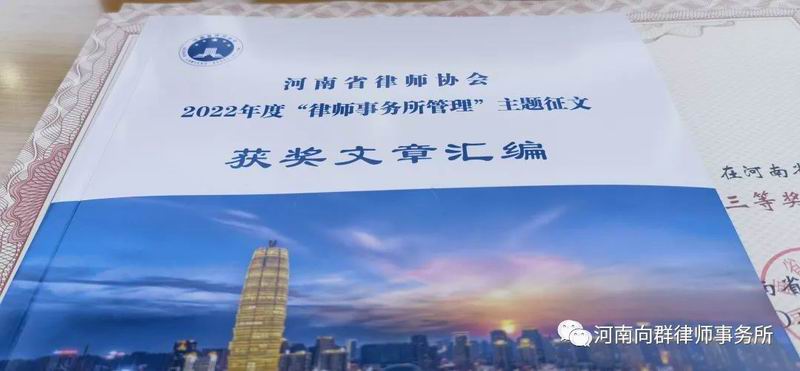 河南省律师协会
2022年度“律师事务所管理”主题征文
获奖文章汇编
在河南省
三等奖
河南向群律师事务所